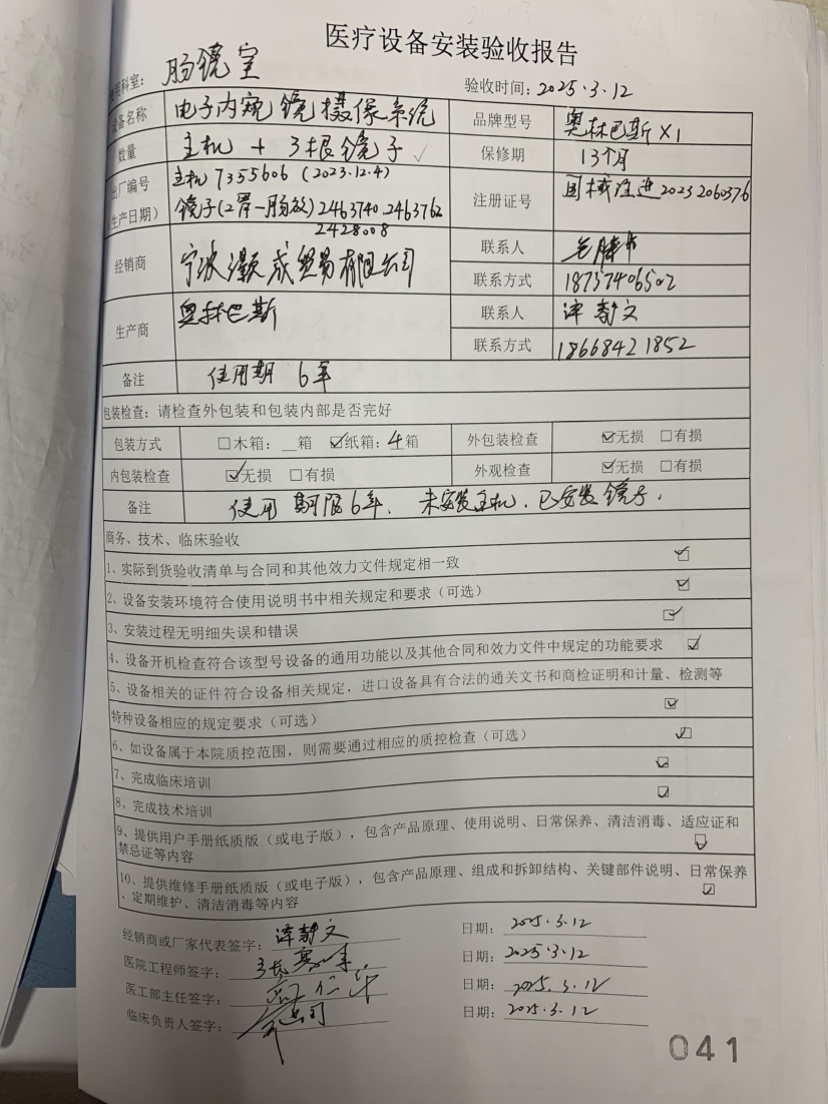 医疗设备安装验收报告
科室：肠镜室 验收时间：2025.3.12
设备名称 电子内窥镜摄像系统 品牌型号 奥林巴斯 X1
数量 主机 + 3根镜子 ✓ 保修期 13个月
出厂编号 主机 7355606 (2023.12.4)
(生产日期) 镜子(2胃一肠) 2463740 2463762 注册证号 国械注进20232060376
2428008
经销商 宁波 成贸易有限公司 联系人
联系方式 18757406502
生产商 奥林巴斯 联系人 谭静文
联系方式 18668421852
备注 使用期 6年
包装检查：请检查外包装和包装内部是否完好
包装方式 □木箱：__箱 ☑纸箱：4箱 外包装检查 ☑无损 □有损
内包装检查 ☑无损 □有损 外观检查 ☑无损 □有损
备注 使用期限6年．未安装主机．已安装镜子．
商务、技术、临床验收
1、实际到货验收清单与合同和其他效力文件规定相一致 ☑
2、设备安装环境符合使用说明书中相关规定和要求（可选） ☑
3、安装过程无明细失误和错误 ☑
4、设备开机检查符合该型号设备的通用功能以及其他合同和效力文件中规定的功能要求 ☑
5、设备相关的证件符合设备相关规定，进口设备具有合法的通关文书和商检证明和计量、检测等
特种设备相应的规定要求（可选） ☑
6、如设备属于本院质控范围，则需要通过相应的质控检查（可选） ☑
7、完成临床培训 ☑
8、完成技术培训 ☑
9、提供用户手册纸质版（或电子版），包含产品原理、使用说明、日常保养、清洁消毒、适应证和
禁忌证等内容 ☑
10、提供维修手册纸质版（或电子版），包含产品原理、组成和拆卸结构、关键部件说明、日常保养
、定期维护、清洁消毒等内容 ☑
经销商或厂家代表签字：谭静文 日期：2025.3.12
医院工程师签字： 日期：2025.3.12
医工部主任签字： 日期：2025.3.12
临床负责人签字： 日期：2025.3.12
041